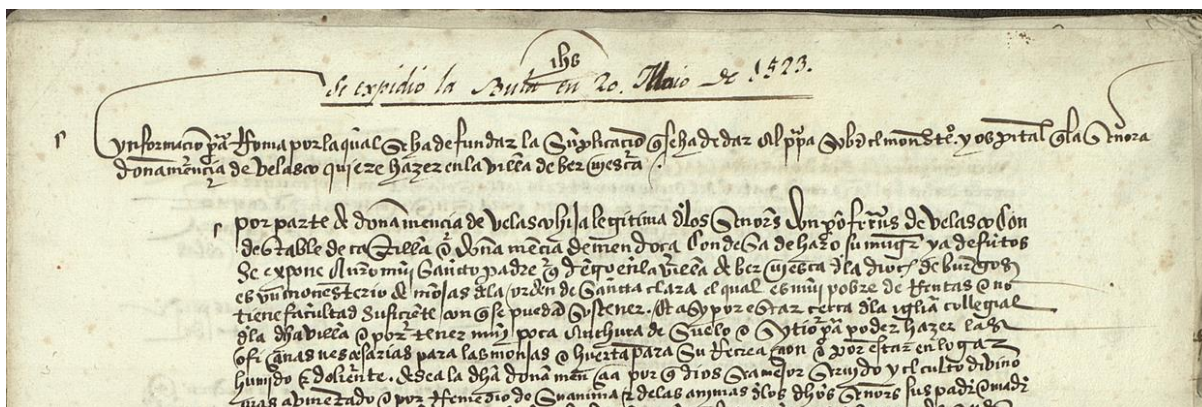 ihs
Se expidio la Bula en 20. Maio de 1523.
ynformacio pa Roma por la qual se ha de fundar la Suplicacio q se ha de dar al ppa sobre el moneste.º y ospital q la Señora
doña mencia de Velasco quiere hazer en la villa de berviesca.
por parte de doña mencia de Velasco hija legitima dlos Señores don po frrns de Velasco Con
destable de castilla & doña mencia de mendoça Condesa de haro su muger ya defuntos
Se expone a nro muy Sancto padre q en la villa de berviesca dla dioc de burgos
es vn monesterio de mojas dla orden de Sancta clara el qual es muy pobre de Rentas & no
tiene facultad suficiete con q se puedan sostener. & asy por estar cerca dla iglia collegial
dla dha villa & por tener muy poca anchura de suelo & sytio pa poder hazer las
ofiçinas nesçesarias para las monjas & huerta para su Recreaçion & por estar en logar
humido & doliente. desea la dha doña mencia por q dios sea mejor servido y el culto divino
mas avmetado & por Remedio de su anima & de las animas dlos dhos Señores sus padre & madre